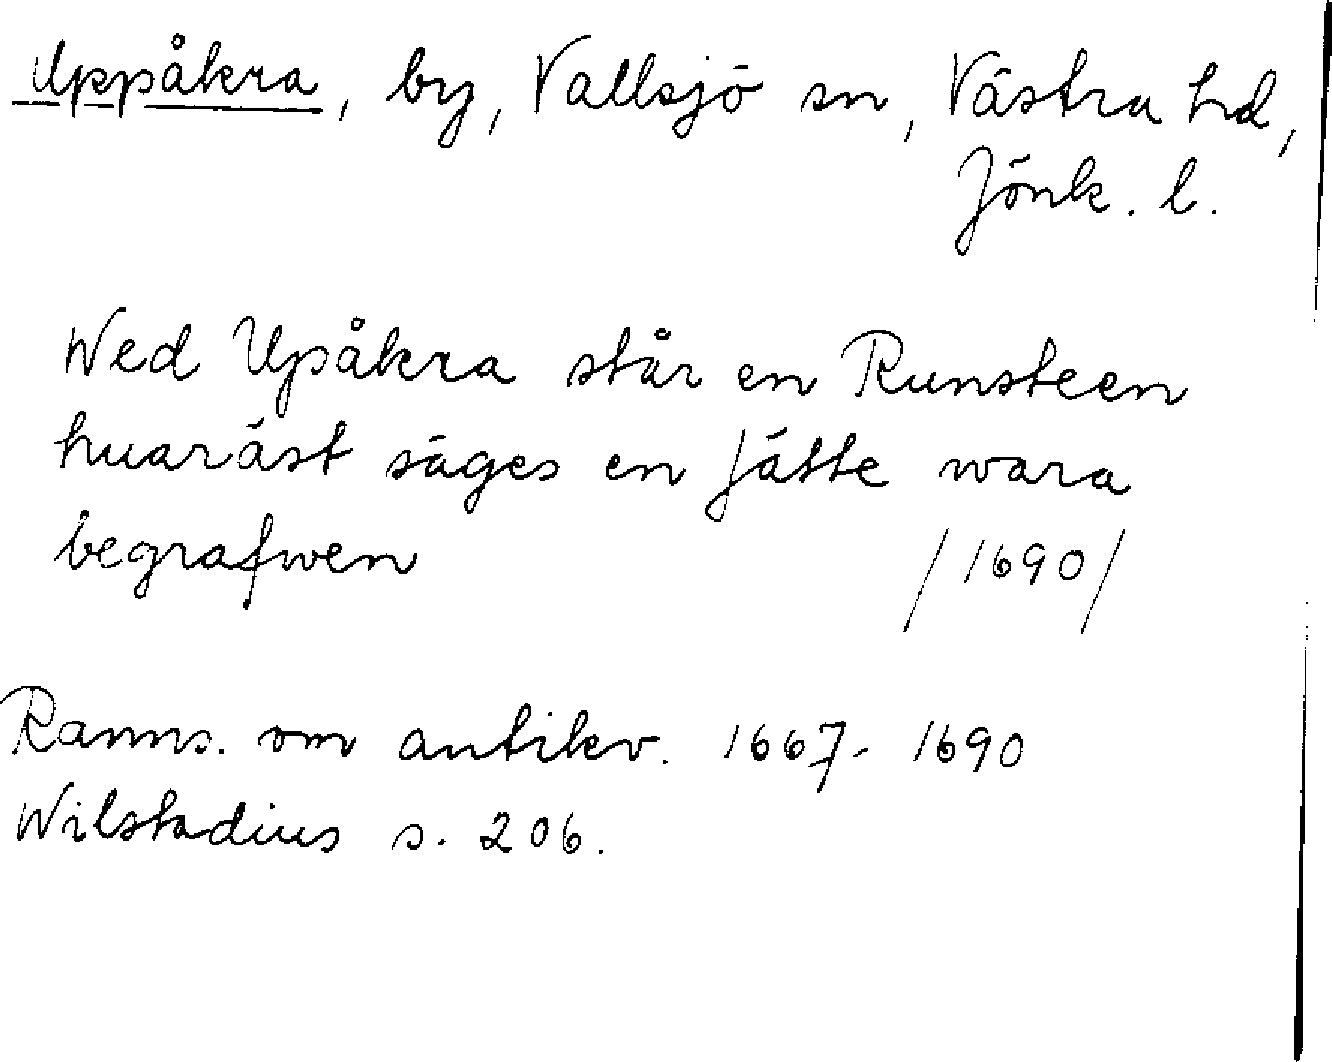 Uppåkra, by, Vallsjö sn, Västra hd,
Jönk. l.
Wed Upåkra står en Runsteen
huaräst säges en Jätte wara
begrafwen /1690/
Ranns. om antikv. 1667-1690
Wilstadius s. 206.